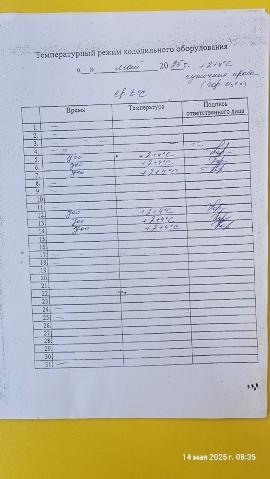 Температурный режим холодильного оборудования
"__" май 2025г. +2+4°C
суточная проба
ср. t°C
Время Температура Подпись ответственного лица
1.
2.
3.
4.
5. 7⁰⁰ +2+4°C
6. 7⁰⁰ +2+4°C
7. 7⁰⁰ +2+4°C
8.
9.
10.
11.
12. 7⁰⁰ +2+4°C
13. 7⁰⁰ +2+4°C
14. 7⁰⁰ +2+4°C
15.
16.
17.
18.
19.
20.
21.
22.
23.
24.
25.
26.
27.
28.
29.
30.
31.
14 мая 2025 г. 08:35